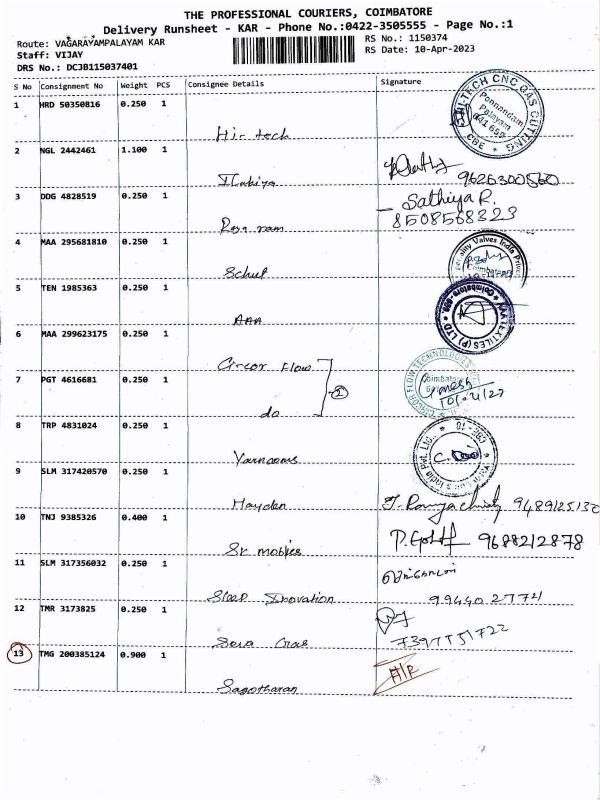 THE PROFESSIONAL COURIERS, COIMBATORE
Delivery Runsheet - KAR - Phone No.:0422-3505555 - Page No.:1
Route: VAGARAYAMPALAYAM KAR RS No.: 1150374
Staff: VIJAY RS Date: 10-Apr-2023
DRS No.: DCJB115037401
S No Consignment No Weight PCS Consignee Details Signature
1 HRD 50350816 0.250 1
Hi-tech
HI-TECH CNC GAS CUTTING
Ponnandam
Palayam
641 659
CBE
2 NGL 2442461 1.100 1
9626300560
3 DDG 4828519 0.250 1
Raja ram
Sathiya R.
8508568323
4 MAA 295681810 0.250 1
Valves India
Coimbatore
5 TEN 1985363 0.250 1
AAA
6 MAA 299623175 0.250 1
Circor Flow
CIRCOR FLOW TECHNOLOGIES
7 PGT 4616681 0.250 1
do
2
8 TRP 4831024 0.250 1
9 SLM 317420570 0.250 1
Hayden
10 TNJ 9385326 0.400 1
Sr mobiles
9688212878
11 SLM 317356032 0.250 1
Sleep Inovation
99440 27721
12 TMR 3173825 0.250 1
13 TMG 200385124 0.900 1
Sagotharan